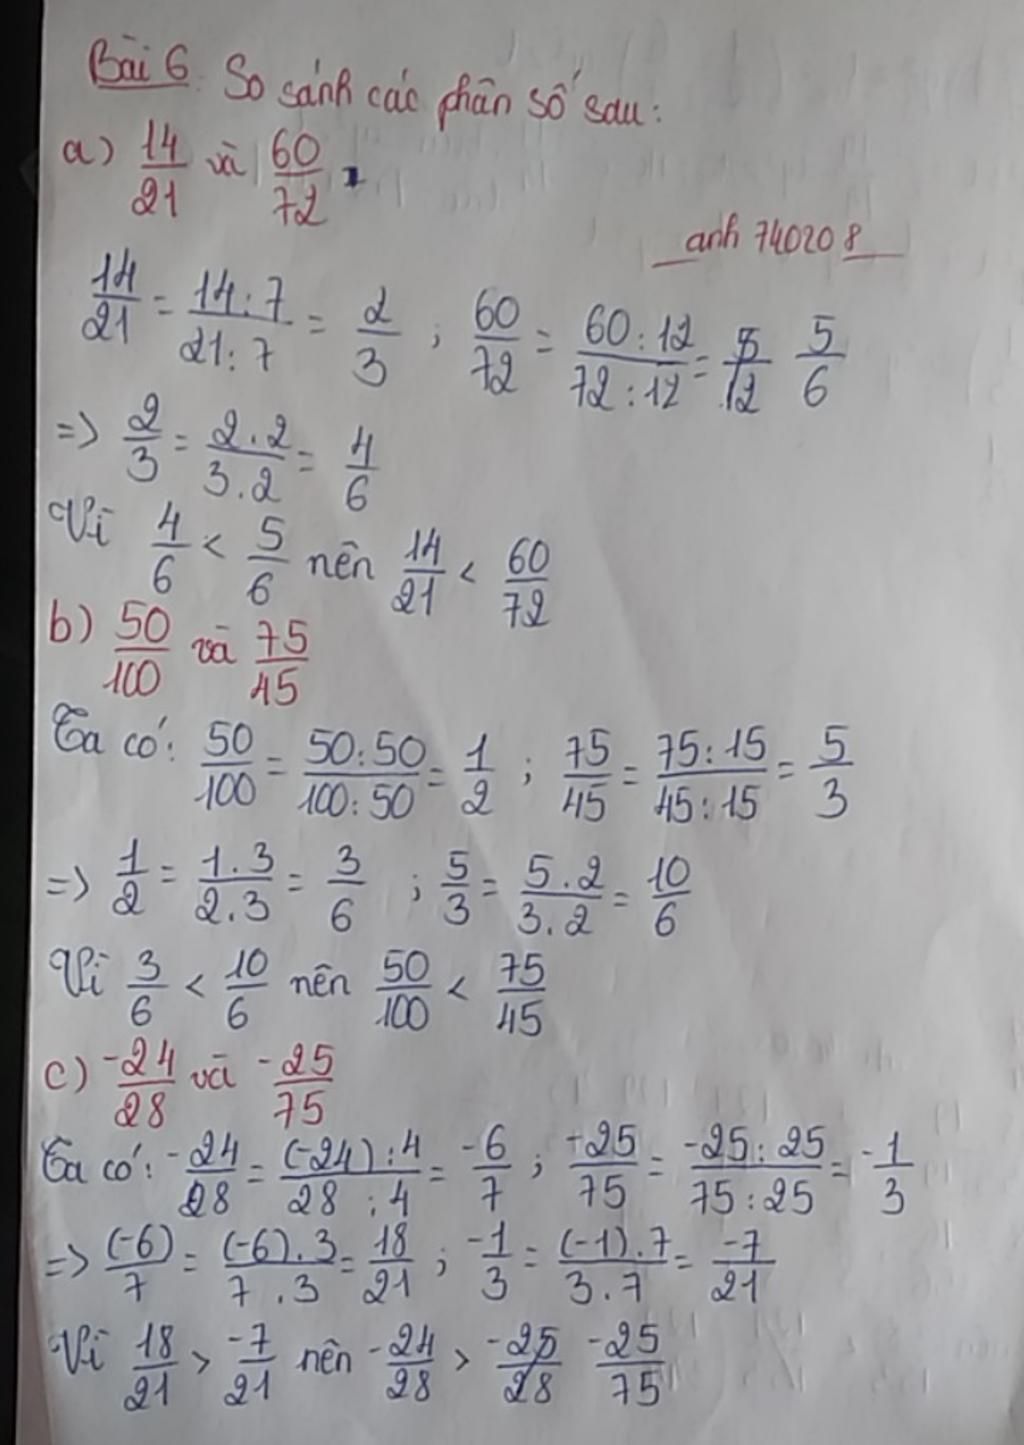 Bài 6. So sánh các phân số sau:
a) 14/21 và 60/72
anh 740208
14/21 = 14:7/21:7 = 2/3 ; 60/72 = 60:12/72:12 = 5/12 5/6
=> 2/3 = 2.2/3.2 = 4/6
Vì 4/6 < 5/6 nên 14/21 < 60/72
b) 50/100 và 75/45
Ta có: 50/100 = 50:50/100:50 = 1/2 ; 75/45 = 75:15/45:15 = 5/3
=> 1/2 = 1.3/2.3 = 3/6 ; 5/3 = 5.2/3.2 = 10/6
Vì 3/6 < 10/6 nên 50/100 < 75/45
c) -24/28 và -25/75
Ta có: -24/28 = (-24):4/28:4 = -6/7 ; -25/75 = -25:25/75:25 = -1/3
=> (-6)/7 = (-6).3/7.3 = 18/21 ; -1/3 = (-1).7/3.7 = -7/21
Vì 18/21 > -7/21 nên -24/28 > -25/28 -25/75